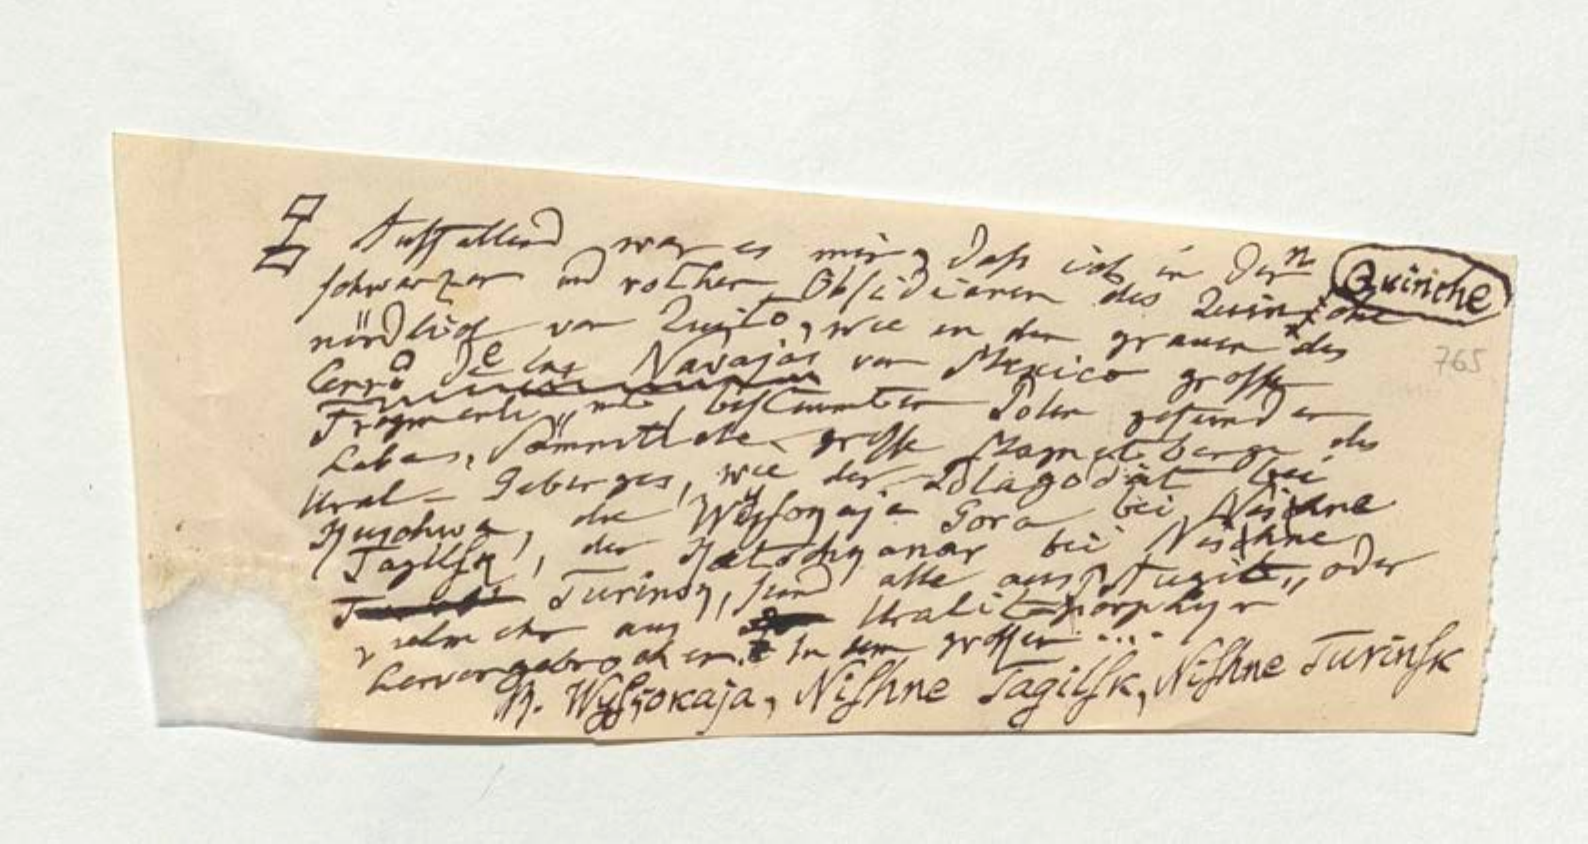 Auffallend war es mir, daß ich in den
schwarzen und rothen Obsidianen des Quinche Quinche
nördlich von Quito, wie in den grauen des
Cerro de las Navajas von Mexico große
Fragmente mit bestimmten Polen gefunden
habe. Sämmtliche große Magnetberge des
Ural-Gebirges, wie der Blagodat bei
Kuschwa, die Wyssokaja Gora bei Nishne
Tagilsk, der Katschkanar bei Nishne
Turinsk, sind alle aus Augit- oder
vielmehr aus Uralitporphyr
hervorgebrochen. In dem großen ....
N. Wyssokaja, Nishne Tagilsk, Nishne Turinsk
765